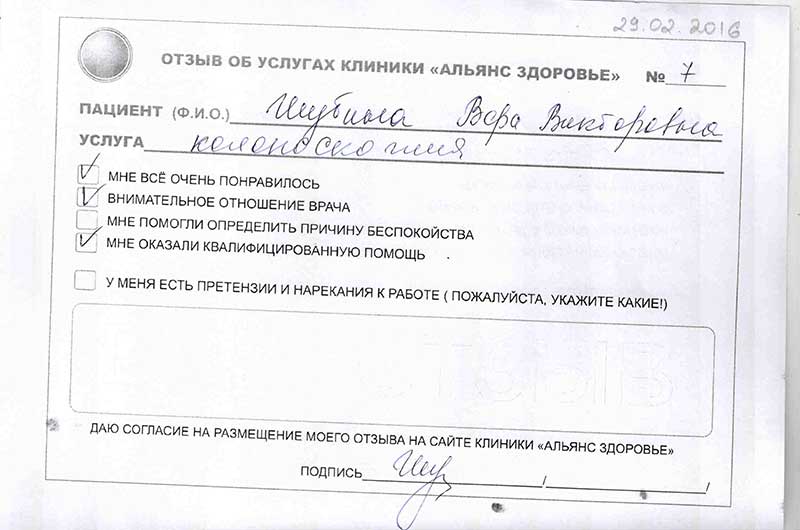 29.02.2016
ОТЗЫВ ОБ УСЛУГАХ КЛИНИКИ «АЛЬЯНС ЗДОРОВЬЕ» № 7
ПАЦИЕНТ (Ф.И.О.) Шубина Вера Викторовна
УСЛУГА колоноскопия
МНЕ ВСЁ ОЧЕНЬ ПОНРАВИЛОСЬ
ВНИМАТЕЛЬНОЕ ОТНОШЕНИЕ ВРАЧА
МНЕ ПОМОГЛИ ОПРЕДЕЛИТЬ ПРИЧИНУ БЕСПОКОЙСТВА
МНЕ ОКАЗАЛИ КВАЛИФИЦИРОВАННУЮ ПОМОЩЬ .
У МЕНЯ ЕСТЬ ПРЕТЕНЗИИ И НАРЕКАНИЯ К РАБОТЕ ( ПОЖАЛУЙСТА, УКАЖИТЕ КАКИЕ!)
ДАЮ СОГЛАСИЕ НА РАЗМЕЩЕНИЕ МОЕГО ОТЗЫВА НА САЙТЕ КЛИНИКИ «АЛЬЯНС ЗДОРОВЬЕ»
ПОДПИСЬ / /